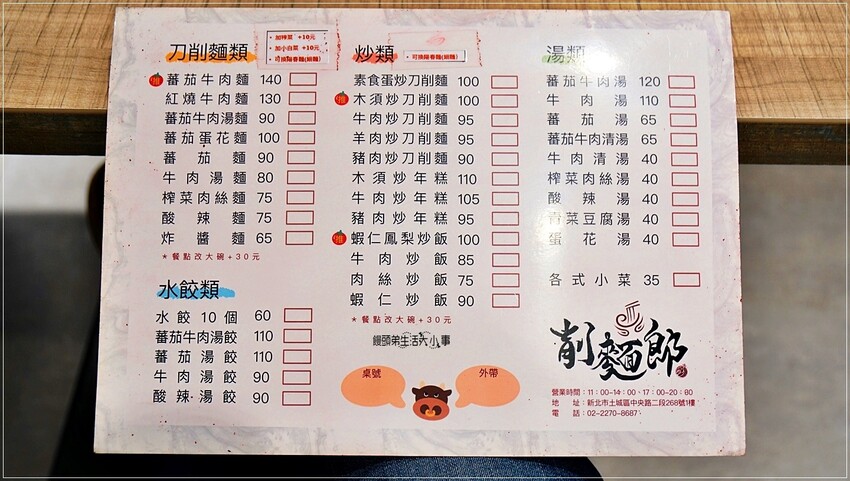 刀削麵類
加辣菜 +10元
加小白菜 +10元
可換陽春麵(細麵)
推
蕃茄牛肉麵 140
紅燒牛肉麵 130
蕃茄牛肉湯麵 90
蕃茄蛋花麵 100
蕃茄麵 90
牛肉湯麵 80
榨菜肉絲麵 75
酸辣麵 75
炸醬麵 65
*餐點改大碗+30元
水餃類
水餃10個 60
蕃茄牛肉湯餃 110
蕃茄湯餃 110
牛肉湯餃 90
酸辣湯餃 90
炒類
可換陽春麵(細麵)
素食蛋炒刀削麵 100
推
木須炒刀削麵 100
牛肉炒刀削麵 95
羊肉炒刀削麵 95
豬肉炒刀削麵 90
木須炒年糕 110
牛肉炒年糕 105
豬肉炒年糕 95
推
蝦仁鳳梨炒飯 100
牛肉炒飯 85
肉絲炒飯 75
蝦仁炒飯 90
*餐點改大碗+30元
饅頭弟生活大小事
桌號
外帶
湯類
蕃茄牛肉湯 120
牛肉湯 110
蕃茄湯 65
蕃茄牛肉清湯 65
牛肉清湯 40
榨菜肉絲湯 40
酸辣湯 40
青菜豆腐湯 40
蛋花湯 40
各式小菜 35
削麵郎
營業時間：11：00-14：00、17：00-20：80
地址：新北市土城區中央路二段268號1樓
電話：02-2270-8687